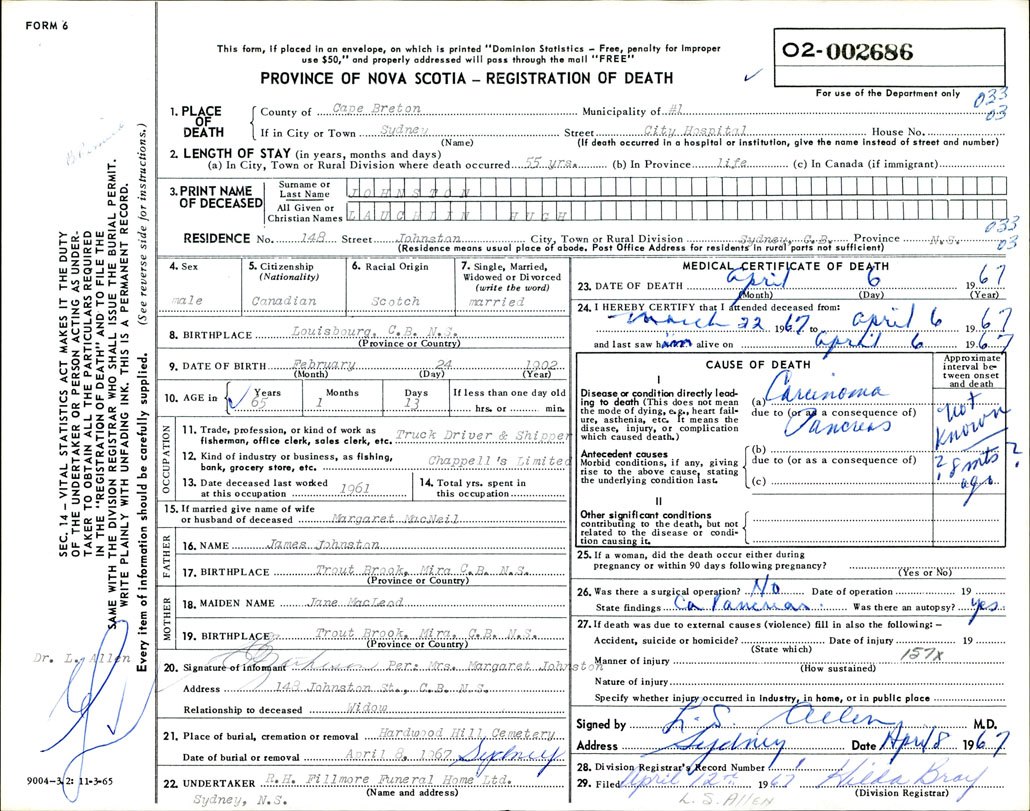 FORM 6
This form, if placed in an envelope, on which is printed "Dominion Statistics – Free, penalty for improper
use $50," and properly addressed will pass through the mail "FREE"
PROVINCE OF NOVA SCOTIA – REGISTRATION OF DEATH
02-002686
For use of the Department only
033
03
1. PLACE OF DEATH
County of Cape Breton Municipality of #1
If in City or Town Sydney Street City Hospital House No.
(Name) (If death occurred in a hospital or institution, give the name instead of street and number)
2. LENGTH OF STAY (in years, months and days)
(a) In City, Town or Rural Division where death occurred 55 yrs. (b) In Province life (c) In Canada (if immigrant)
3. PRINT NAME OF DECEASED
Surname or Last Name JOHNSTON
All Given or Christian Names LAUCHLIN HUGH
033
03
RESIDENCE No. 148 Street Johnston City, Town or Rural Division Sydney, C.B. Province N.S.
(Residence means usual place of abode. Post Office Address for residents in rural parts not sufficient)
4. Sex
male
5. Citizenship
(Nationality)
Canadian
6. Racial Origin
Scotch
7. Single, Married,
Widowed or Divorced
(write the word)
married
8. BIRTHPLACE Louisbourg, C.B. N.S.
(Province or Country)
9. DATE OF BIRTH February 24 1902
(Month) (Day) (Year)
10. AGE in
Years
65
Months
1
Days
13
If less than one day old
hrs. or min.
OCCUPATION
11. Trade, profession, or kind of work as
fisherman, office clerk, sales clerk, etc. Truck Driver & Shipper
12. Kind of industry or business, as fishing,
bank, grocery store, etc. Chappell's Limited
13. Date deceased last worked
at this occupation 1961
14. Total yrs. spent in
this occupation
15. If married give name of wife
or husband of deceased Margaret MacNeil
FATHER
16. NAME James Johnston
17. BIRTHPLACE Trout Brook, Mira C.B. N.S.
(Province or Country)
MOTHER
18. MAIDEN NAME Jane MacLeod
19. BIRTHPLACE Trout Brook, Mira, C.B. N.S.
(Province or Country)
20. Signature of informant Per: Mrs. Margaret Johnston
Address 148 Johnston St., C.B. N.S.
Relationship to deceased Widow
21. Place of burial, cremation or removal Hardwood Hill Cemetery
Date of burial or removal April 8, 1967 Sydney
22. UNDERTAKER R.H. Fillmore Funeral Home Ltd.
(Name and address)
Sydney, N.S.
MEDICAL CERTIFICATE OF DEATH
23. DATE OF DEATH April 6 1967
(Month) (Day) (Year)
24. I HEREBY CERTIFY that I attended deceased from:
March 22 1967 to April 6 1967
and last saw him alive on April 6 1967
CAUSE OF DEATH
Approximate
interval between onset
and death
I
Disease or condition directly leading to death (This does not mean
the mode of dying, e.g., heart failure, asthenia, etc. It means the
disease, injury, or complication
which caused death.)
(a) Carcinoma
due to (or as a consequence of)
Pancreas
not
known
Antecedent causes
Morbid conditions, if any, giving
rise to the above cause, stating
the underlying condition last.
(b)
due to (or as a consequence of)
(c)
? 8 mts ?
ago
II
Other significant conditions
contributing to the death, but not
related to the disease or condition causing it.
25. If a woman, did the death occur either during
pregnancy or within 90 days following pregnancy?
(Yes or No)
26. Was there a surgical operation? No Date of operation 19
State findings Ca Pancreas. Was there an autopsy? yes.
27. If death was due to external causes (violence) fill in also the following: –
Accident, suicide or homicide? Date of injury 19
(State which)
157x
Manner of injury
(How sustained)
Nature of injury
Specify whether injury occurred in industry, in home, or in public place
Signed by L. S. Allen M.D.
Address Sydney Date April 8 1967
28. Division Registrar's Record Number
29. Filed April 12th 1967 Hilda Bray
(Division Registrar)
L. S. ALLEN
SEC. 14 – VITAL STATISTICS ACT MAKES IT THE DUTY
OF THE UNDERTAKER OR PERSON ACTING AS UNDERTAKER TO OBTAIN ALL THE PARTICULARS REQUIRED
IN THE "REGISTRATION OF DEATH" AND TO FILE THE
SAME WITH THE DIVISION REGISTRAR WHO SHALL ISSUE THE BURIAL PERMIT.
WRITE PLAINLY WITH UNFADING INK. THIS IS A PERMANENT RECORD.
Every item of information should be carefully supplied. (See reverse side for instructions.)
Dr. L. Allen
9004-3.2: 11-3-65